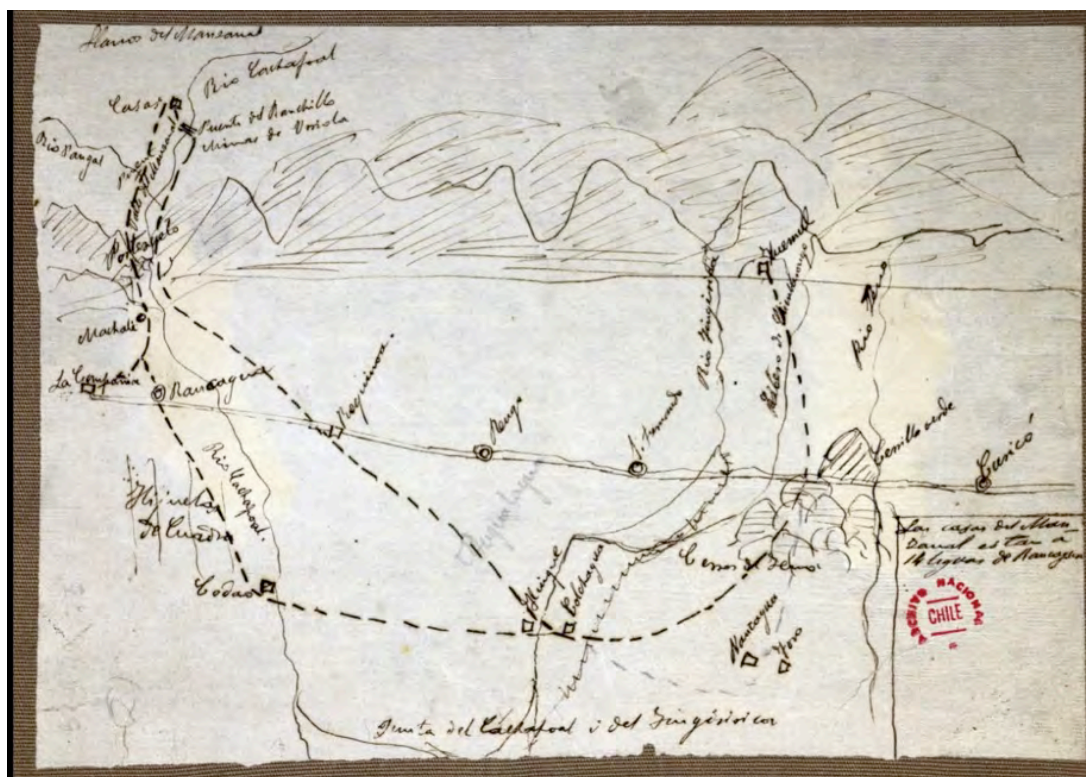 Llanos del Manzanal
Rio Cachapoal
Casas
Puente del Ranchillo
Minas de
Rio Pangal
Machali
La Compañia
Rancagua
Requinoa.
Rengo
S. Fernando
Rio Tinguiririca
Huemul
Estero de Chimbarongo
Rio Teno
Cerrillo verde
Curicó
Rio Cachapoal
Hijuelas
de Cuadra
Codao
Colchagua
Cerros de Teno
Nancagua
Toro
Las casas del Man
zanal estan a
14 leguas de Rancagua
ARCHIVO NACIONAL
CHILE
Junta del Cachapoal i del Tinguiririca